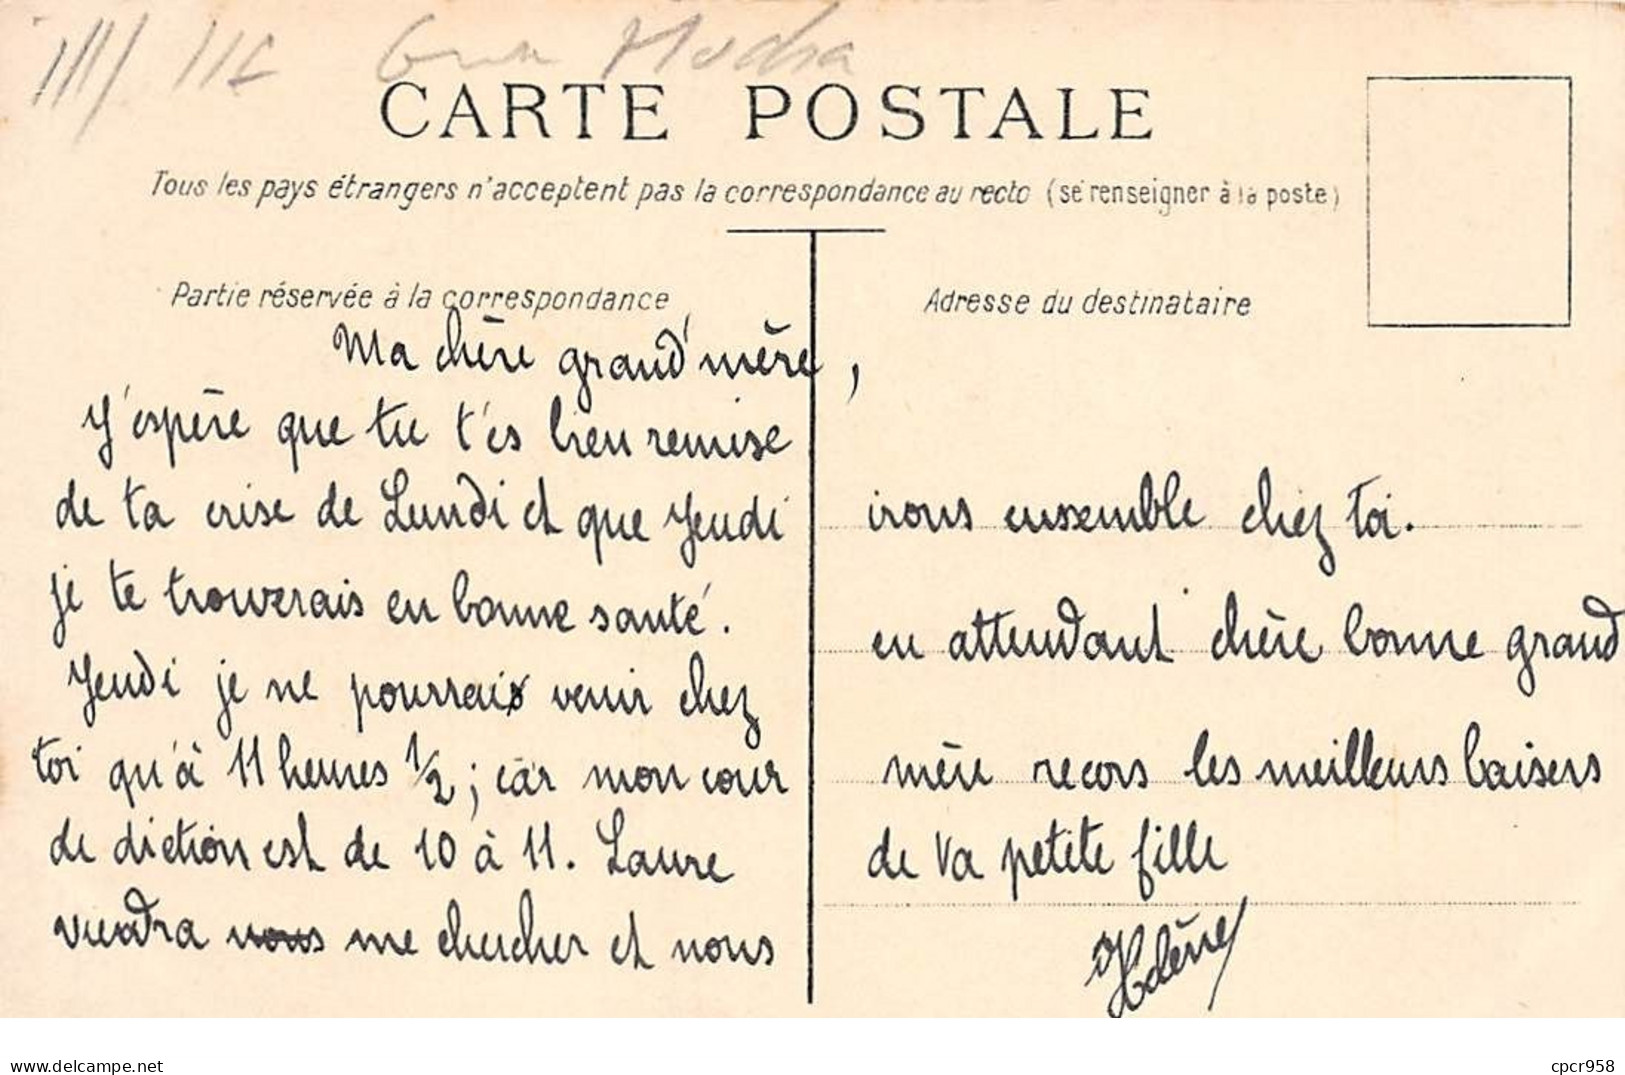 CARTE POSTALE
Tous les pays étrangers n'acceptent pas la correspondance au recto (se renseigner à la poste)
Partie réservée à la correspondance
Ma chère grand'mère,
J'espère que tu t'es bien remise
de ta crise de Lundi et que Jeudi
je te trouverais en bonne santé.
Jeudi je ne pourrais venir chez
toi qu'à 11 heures 1/2 ; car mon cour
de diction est de 10 à 11. Laure
viendra nous me chercher et nous
Adresse du destinataire
irons ensemble chez toi.
en attendant chère bonne grand
mère recors les meilleurs baisers
de ta petite fille
Hélène
delcampe.net
cpcr958